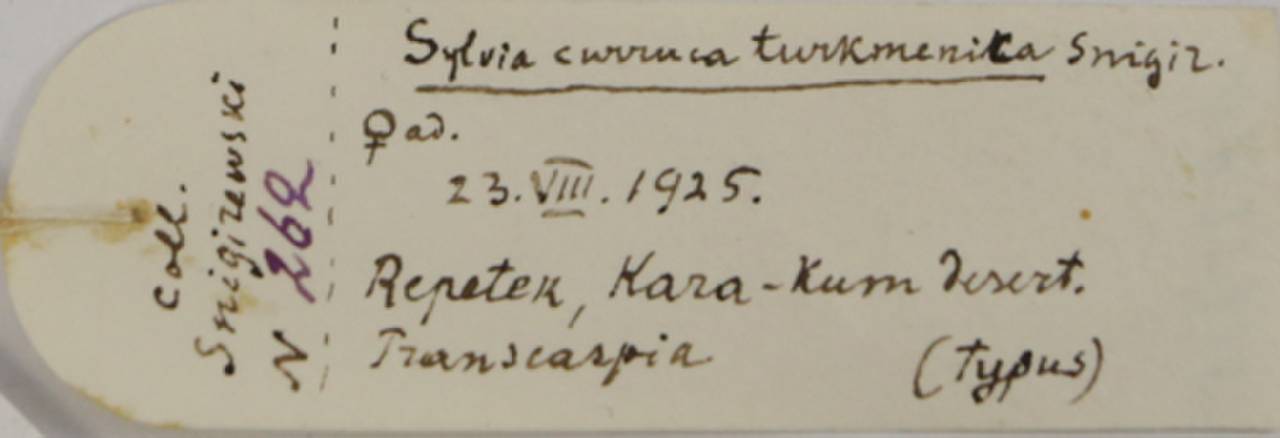 Coll.
Snigirewski
N 262
Sylvia curruca turkmenica Snigir.
♀ ad.
23.VIII.1925.
Repetek, Kara-Kum desert.
Transcaspia (Typus)